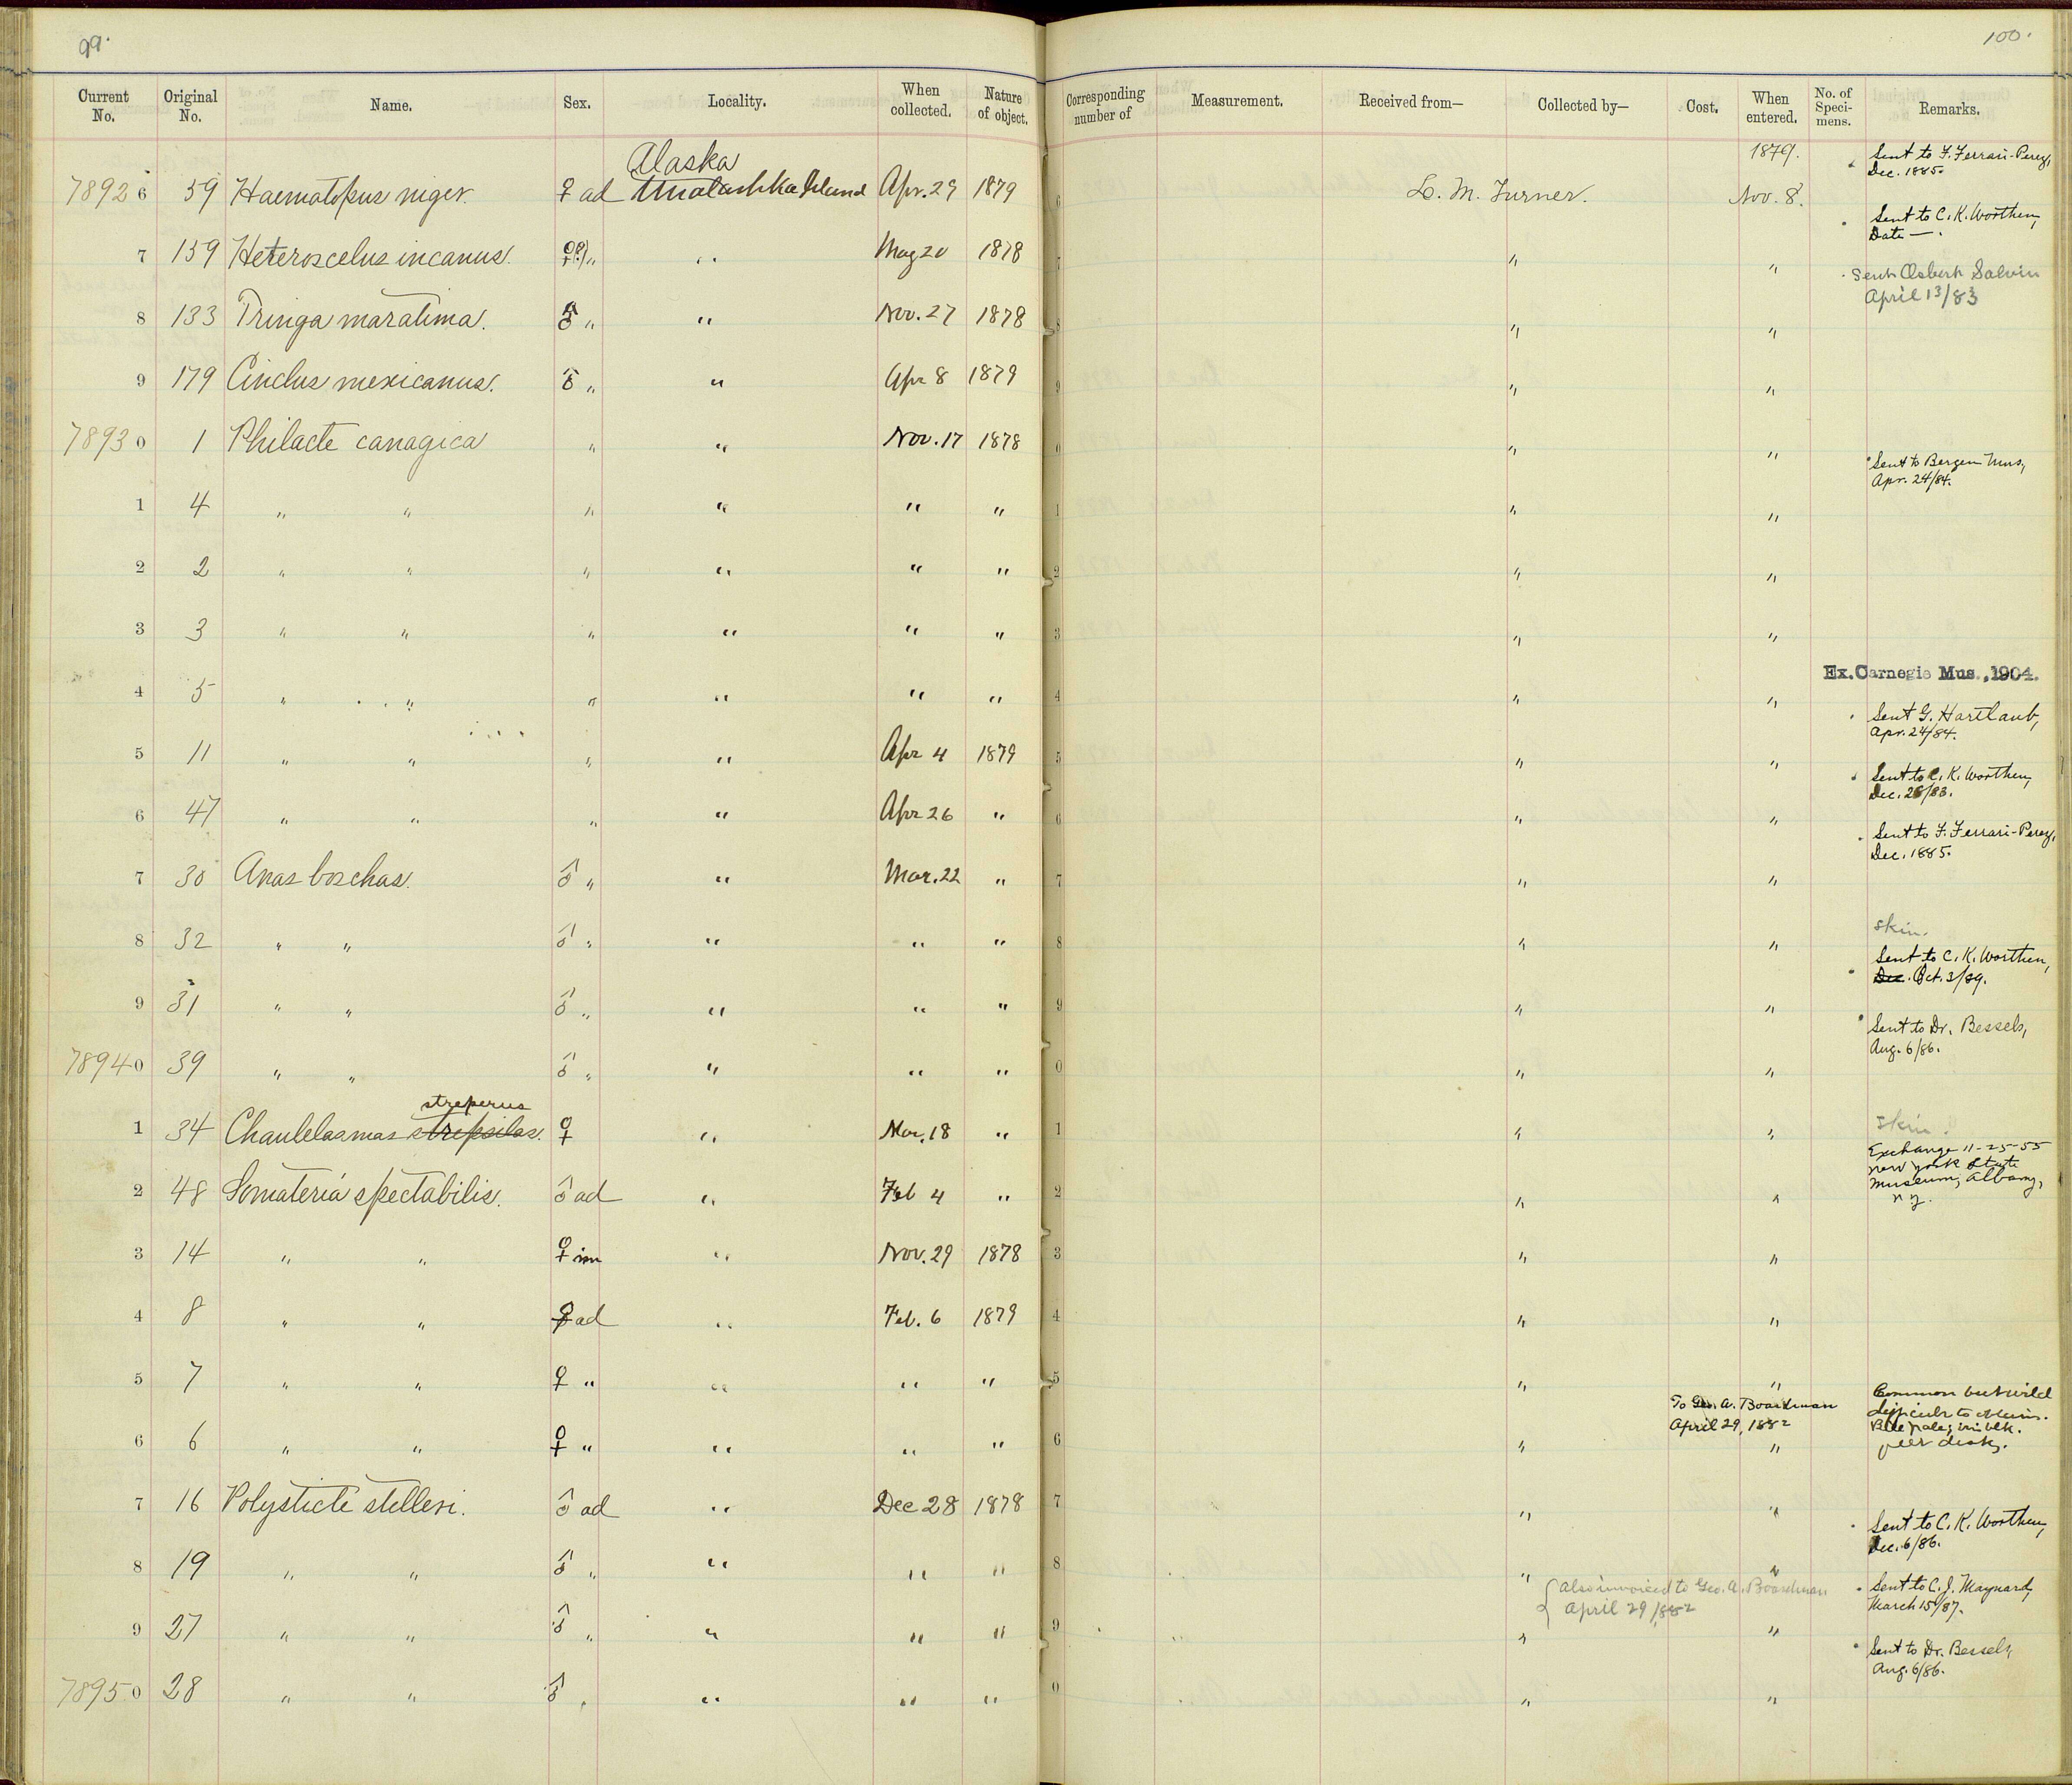 99.
100.
Current No. Original No. Name. Sex. Locality. When collected. Nature of object. Corresponding number of Measurement. Received from— Collected by— Cost. When entered. No. of Specimens. Remarks.
Alaska
1879.
Sent to F. Ferrari-Perez,
Dec. 1885.
7892 6 59 Haematopus niger. ♀ ad Unalashka Island Apr. 29 1879 6 L. M. Turner. Nov. 8.
Sent to C. K. Worthen,
Date —.
7 159 Heteroscelus incanus. ♀(?) " " May 20 1878 7 " "
Sent Osbert Salvin
April 13/83
8 133 Tringa maratima. ♂ " " Nov. 27 1878 8 " "
9 179 Cinclus mexicanus. ♂ " " Apr 8 1879 9 " "
7893 0 1 Philacte canagica " " Nov. 17 1878 0 " "
Sent to Bergen Mus,
Apr. 24/84.
1 4 " " " " " " 1 " "
2 2 " " " " " " 2 " "
3 3 " " " " " " 3 " "
Ex. Carnegie Mus., 1904.
4 5 " " " " " " 4 " "
Sent G. Hartlaub,
Apr. 24/84.
5 11 " " " " Apr 4 1879 5 " "
Sent to C. K. Worthen,
Dec. 26/83.
6 47 " " " " Apr 26 " 6 " "
Sent to F. Ferrari-Perez,
Dec. 1885.
7 30 Anas boschas. ♂ " " Mar. 22 " 7 " "
skin.
8 32 " " ♂ " " " " 8 " "
Sent to C. K. Worthen,
Dec. Oct. 3/89.
9 31 " " ♂ " " " " 9 " "
Sent to Dr. Bessels,
Aug. 6/86.
7894 0 39 " " ♂ " " " " 0 " "
streperus
1 34 Chaulelasmas strepsilas. ♀ " Mar. 18 " 1 " "
skin.
Exchange 11-25-55
New York State
Museum, Albany,
n y.
2 48 Somateria spectabilis. ♂ ad " Feb 4 " 2 " "
3 14 " " ♀ im " Nov. 29 1878 3 " "
4 8 " " ♀ ad " Feb. 6 1879 4 " "
5 7 " " ♀ " " " " 5 " "
To Geo. A. Boardman
April 29, 1882
Common but wild
difficult to obtain.
Bill pale; iris blk.
feet dusky.
6 6 " " ♀ " " " " 6 " "
7 16 Polysticte stelleri. ♂ ad " Dec 28 1878 7 " "
Sent to C. K. Worthen,
Dec. 6/86.
8 19 " " ♂ " " " " 8 " "
also invoiced to Geo. A. Boardman
April 29, 1882
Sent to C. J. Maynard,
March 15/87.
9 27 " " ♂ " " " " 9 " "
Sent to Dr. Bessels,
Aug. 6/86.
7895 0 28 " " ♂ " " " " 0 " "